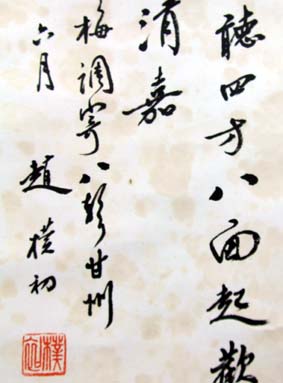 聽四方八面起歡
消嘉
梅調寄八聲甘州
六月 趙樸初
樸初